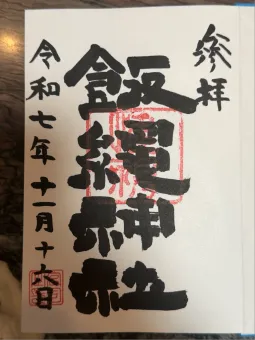 參拝
飯繩神社
令和七年十一月十六日